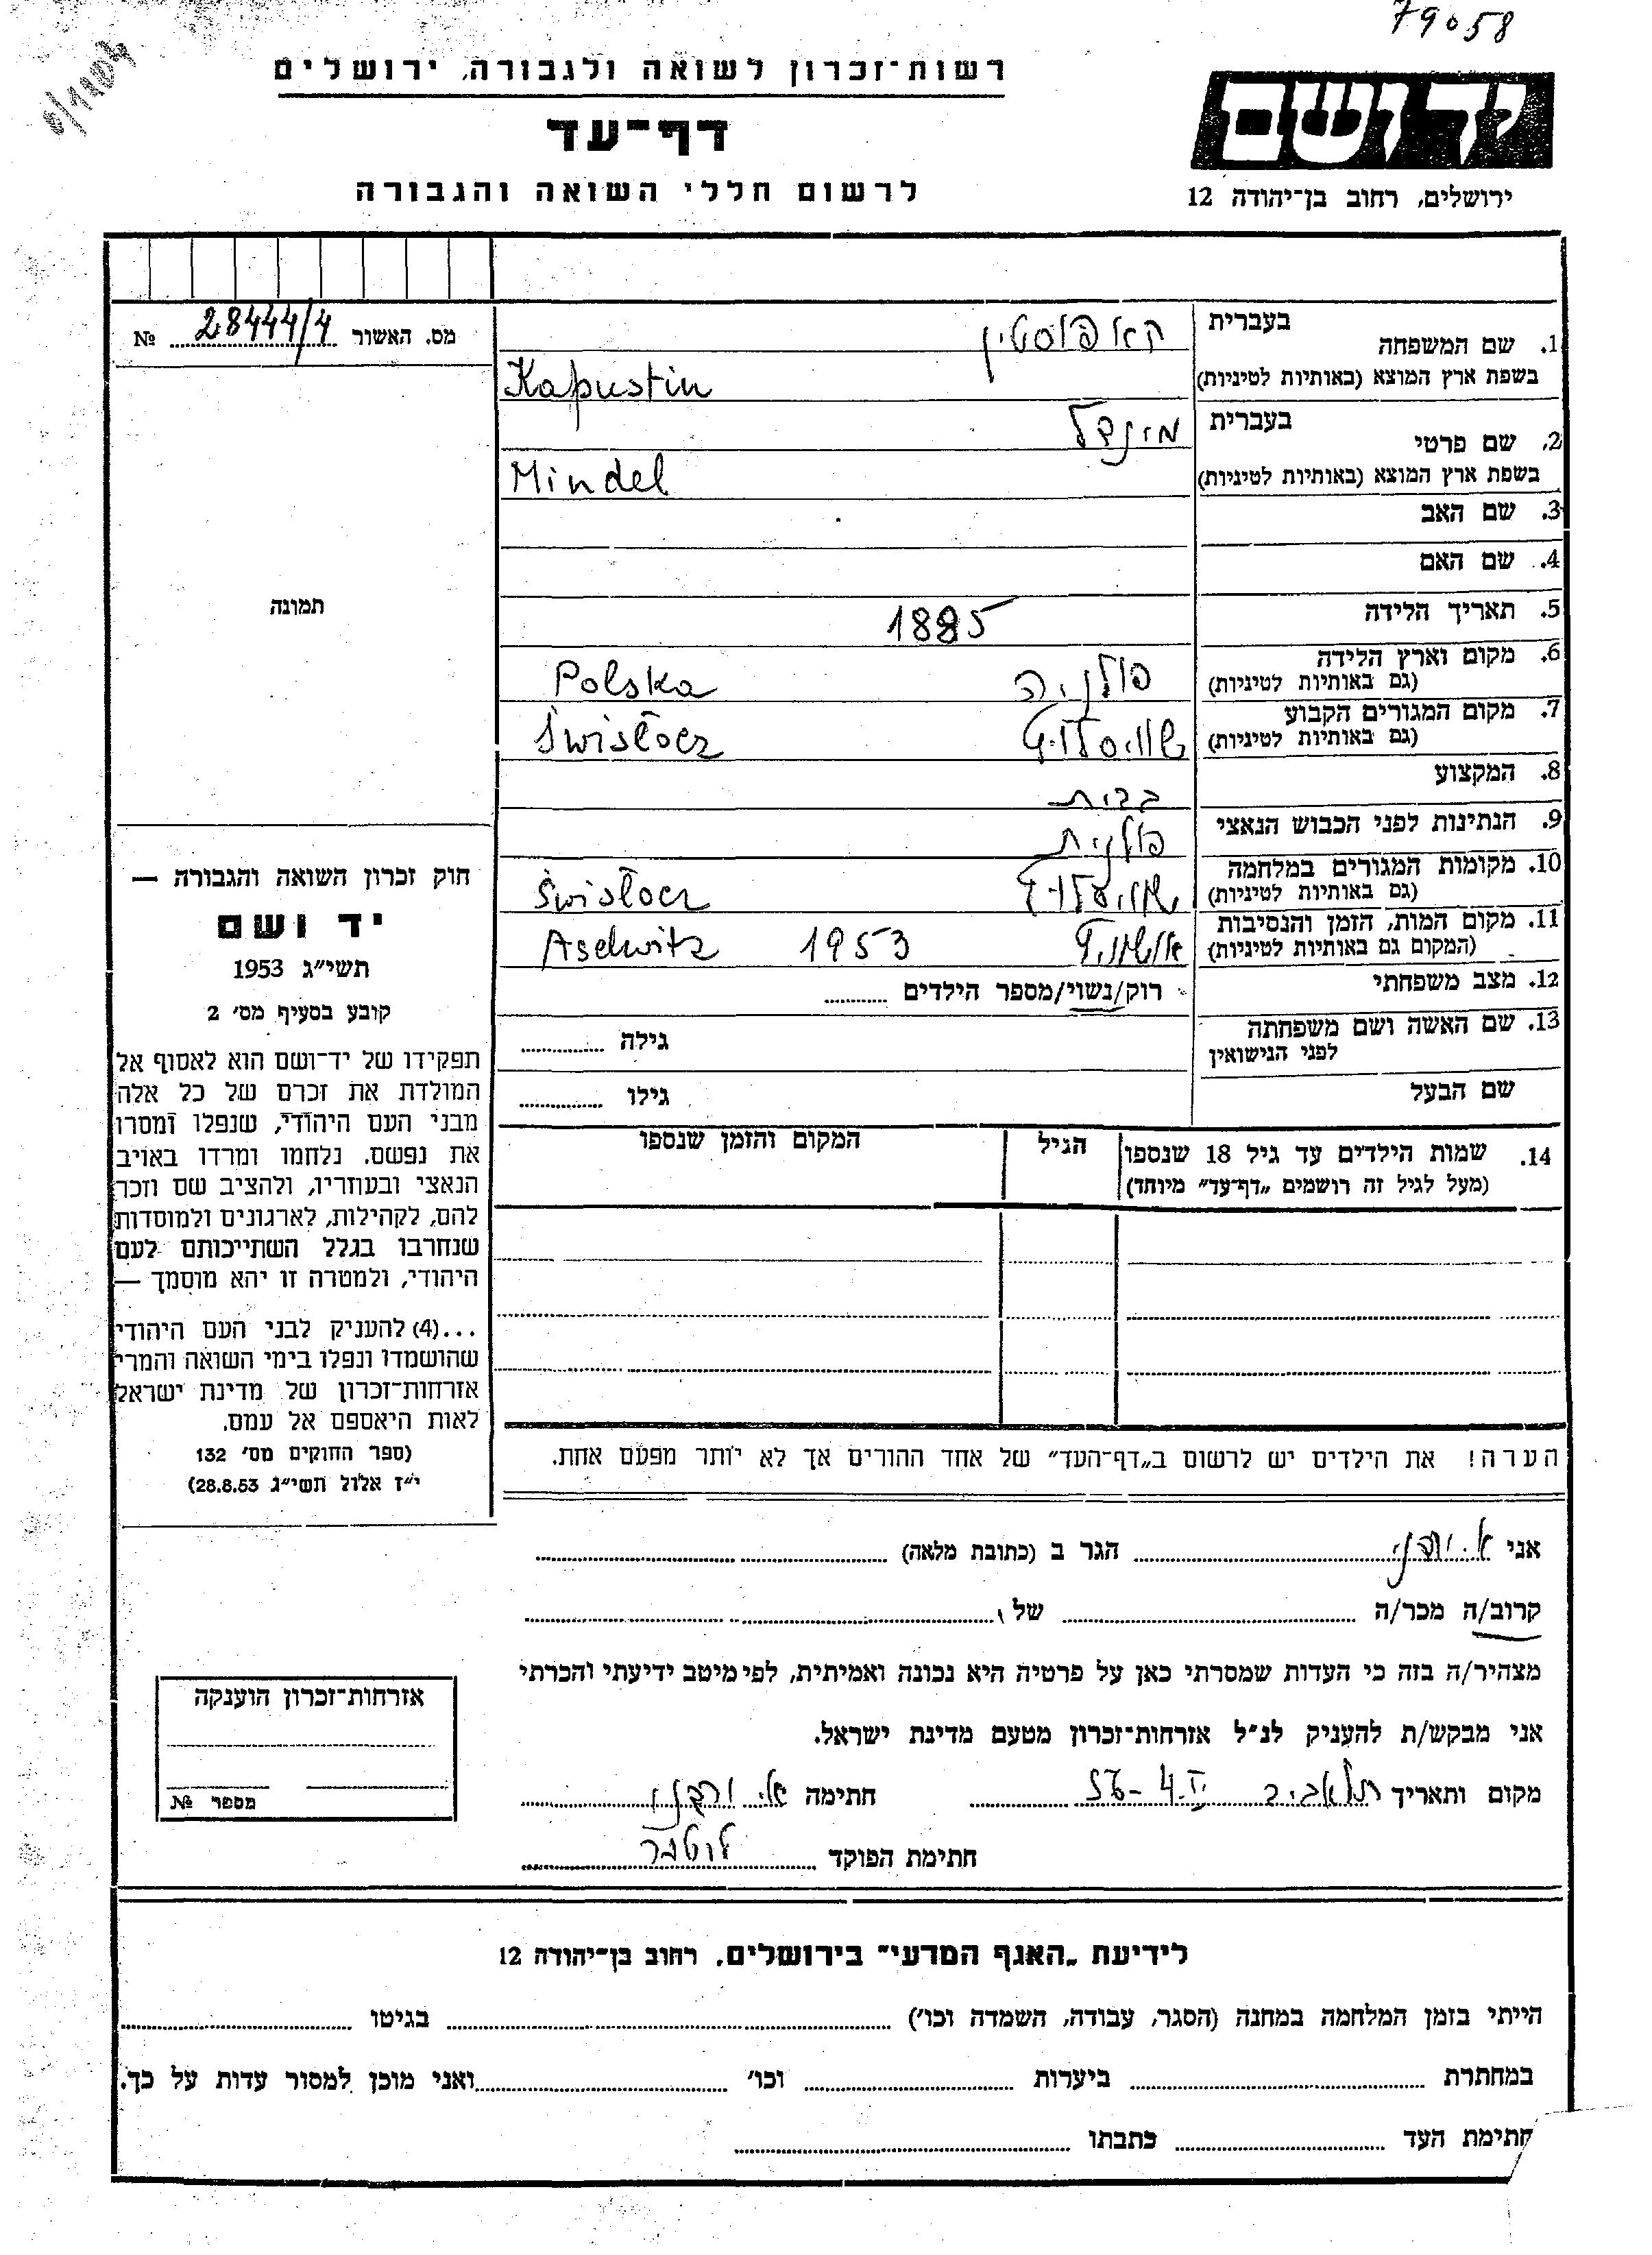 79058
רשות־זכרון לשואה ולגבורה, ירושלים
דף־עד
לרשום חללי השואה והגבורה
יד ושם
ירושלים, רחוב בן־יהודה 12
מס. האשור 28444/4 №
1. שם המשפחה בעברית קאפוסטין
בשפת ארץ המוצא (באותיות לטיניות) Kapustin
2. שם פרטי בעברית מינדל
בשפת ארץ המוצא (באותיות לטיניות) Mindel
3. שם האב
4. שם האם
5. תאריך הלידה 1885
6. מקום וארץ הלידה פולניה Polska
(גם באותיות לטיניות)
7. מקום המגורים הקבוע Świsłocz
(גם באותיות לטיניות)
8. המקצוע
9. הנתינות לפני הכבוש הנאצי פולנית
10. מקומות המגורים במלחמה Świsłocz
(גם באותיות לטיניות)
11. מקום המות, הזמן והנסיבות 1953 Aschwitz
(המקום גם באותיות לטיניות)
12. מצב משפחתי רוק/נשוי/מספר הילדים
13. שם האשה ושם משפחתה גילה
לפני הנישואין
שם הבעל גילו
14. שמות הילדים עד גיל 18 שנספו הגיל המקום והזמן שנספו
(מעל לגיל זה רושמים „דף־עד” מיוחד)
תמונה
חוק זכרון השואה והגבורה —
יד ושם
תשי״ג 1953
קובע בסעיף מס׳ 2
תפקידו של יד־ושם הוא לאסוף אל
המולדת את זכרם של כל אלה
מבני העם היהודי, שנפלו ומסרו
את נפשם, נלחמו ומרדו באויב
הנאצי ובעוזריו, ולהציב שם וזכר
להם, לקהילות, לארגונים ולמוסדות
שנחרבו בגלל השתייכותם לעם
היהודי, ולמטרה זו יהא מוסמך —
...(4) להעניק לבני העם היהודי
שהושמדו ונפלו בימי השואה והמרי
אזרחות־זכרון של מדינת ישראל
לאות היאספם אל עמם.
(ספר החוקים מס׳ 132
י״ז אלול תשי״ג 28.8.53)
הערה! את הילדים יש לרשום ב„דף־העד” של אחד ההורים אך לא יותר מפעם אחת.
אני הגר ב (כתובת מלאה)
קרוב/ה מכר/ה של
מצהיר/ה בזה כי העדות שמסרתי כאן על פרטיה היא נכונה ואמיתית, לפי מיטב ידיעתי והכרתי
אני מבקש/ת להעניק לנ״ל אזרחות־זכרון מטעם מדינת ישראל.
מקום ותאריך תל אביב 4.II-56 חתימה
חתימת הפוקד
אזרחות־זכרון הוענקה
מספר №
לידיעת „האגף המדעי” בירושלים, רחוב בן־יהודה 12
הייתי בזמן המלחמה במחנה (הסגר, עבודה, השמדה וכו׳) בגיטו
במחתרת ביערות וכו׳ ואני מוכן למסור עדות על כך.
חתימת העד כתבתו